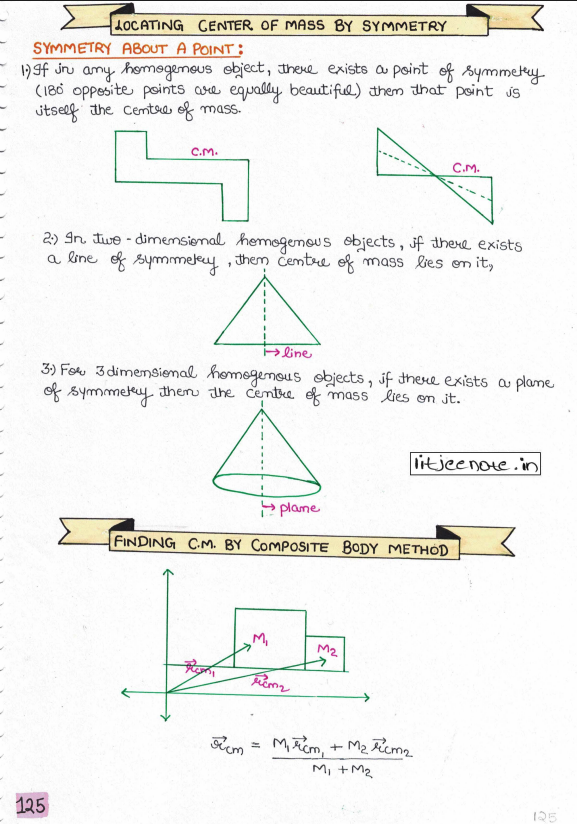 LOCATING CENTER OF MASS BY SYMMETRY
SYMMETRY ABOUT A POINT:
1.) If in any homogenous object, there exists a point of symmetry
(180° opposite points are equally beautiful) then that point is
itself the centre of mass.
C.M.
C.M.
2.) In two-dimensional homogenous objects, if there exists
a line of symmetry, then centre of mass lies on it,
→ line
3.) For 3 dimensional homogenous objects, if there exists a plane
of symmetry then the centre of mass lies on it.
iitjeenote.in
→ plane
FINDING C.M. BY COMPOSITE BODY METHOD
M₁
M₂
r⃗cm₁
r⃗cm₂
r⃗cm = M₁r⃗cm₁ + M₂r⃗cm₂
M₁ + M₂
125
125